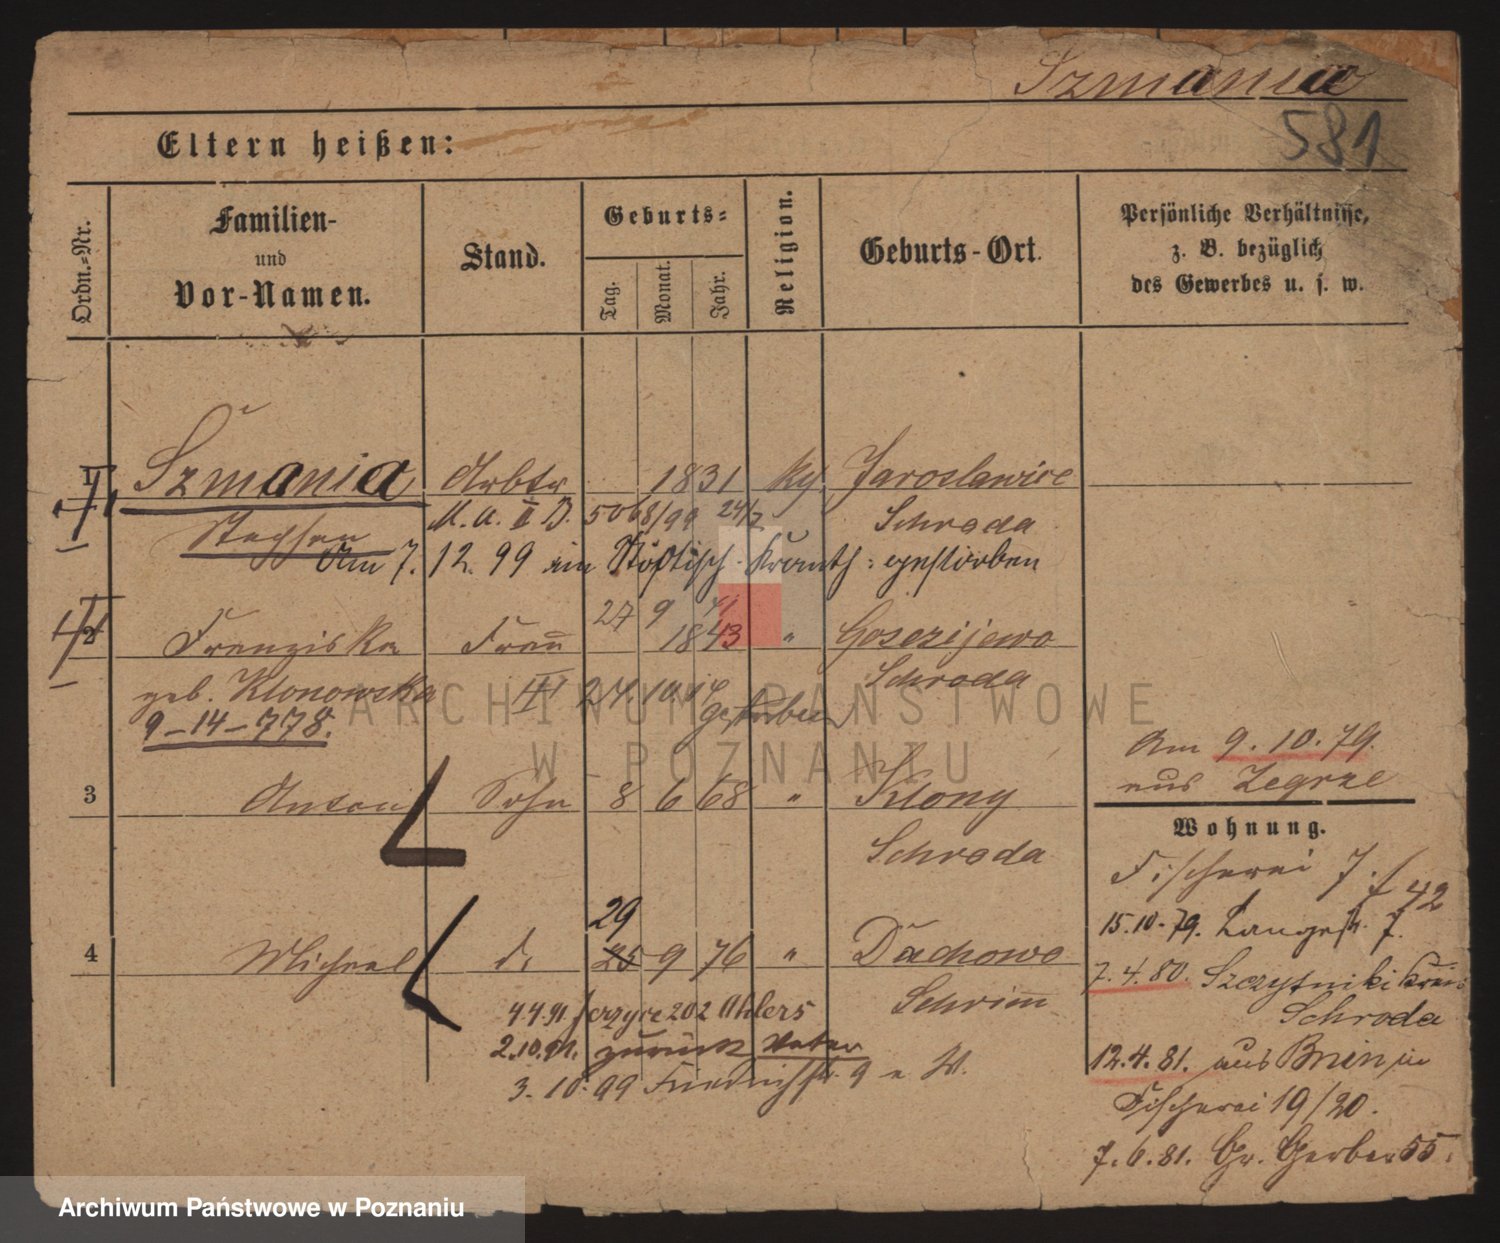 Szmania
581
Eltern heißen:
Ordn.-Nr.
Familien-
und
Vor-Namen.
Stand.
Geburts-
Tag.
Monat.
Jahr.
Religion.
Geburts-Ort.
Persönliche Verhältnisse,
z. B. bezüglich
des Gewerbes u. s. w.
1 Szmania Arbtr 1831 Jaroslawice
Stephan Schroda
Am 7. 12. 99 im gestorben
2 Franziska Frau 27 9 41 1843 "
geb. Klonowska III 27. 10. Schroda
gestorben
9-14-778.
3 Anton Sohn 8 6 68 " Klony
Schroda
4 Michael d. 29 25 9 76 " Dachowo
Schrimm
4.4.91 Jerzyce 202 Ahlers
2.10.91. zurück Vater
3.10.99 Friedrichstr. 9
Am 9.10.79.
aus Zegrze
Wohnung.
Fischerei 7.
42
15.10.79. Langestr. 7.
7.4.80. Szczytniki Kreis
Schroda
12.4.81. aus Bnin in
Fischerei 19/20.
7.6.81. Gr. Gerber 55.
ARCHIWUM PAŃSTWOWE
W POZNANIU
Archiwum Państwowe w Poznaniu